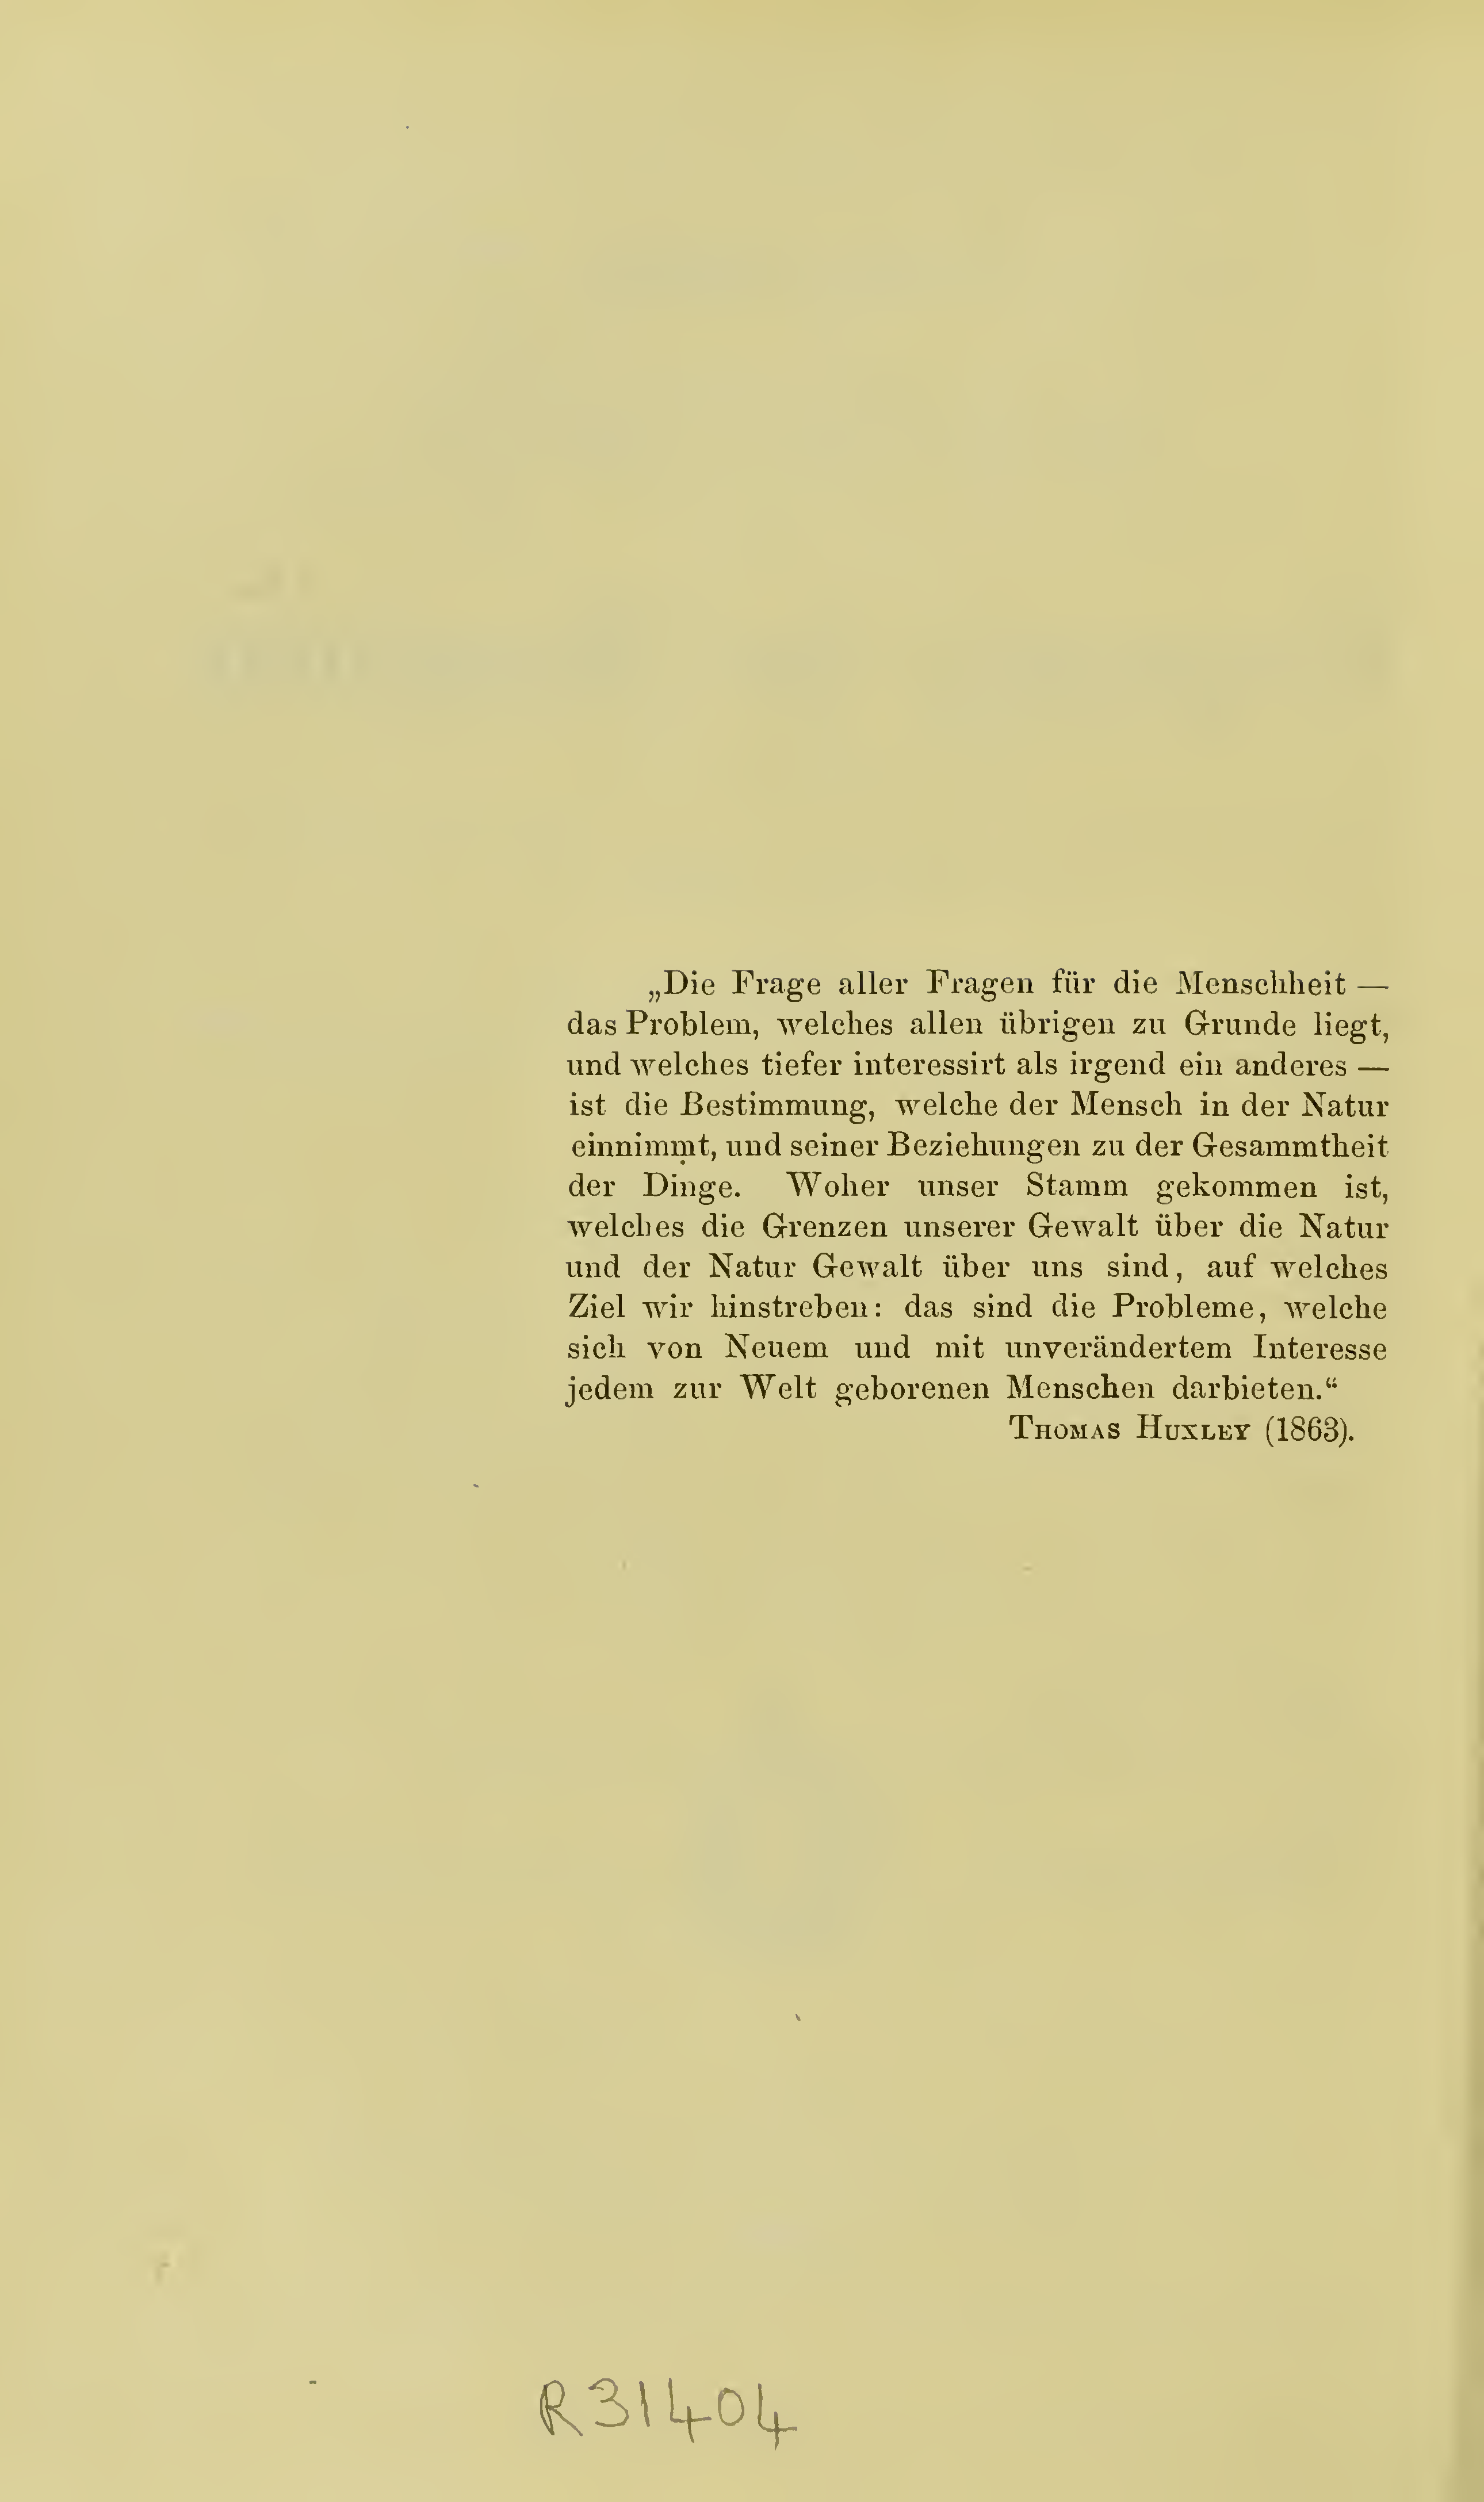 „Die Frage aller Fragen für die Menschheit —
das Problem, welches allen übrigen zu Grunde liegt,
und welches tiefer interessirt als irgend ein anderes —
ist die Bestimmung, welche der Mensch in der Natur
einnimmt, und seiner Beziehungen zu der Gesammtheit
der Dinge. Woher unser Stamm gekommen ist,
welches die Grenzen unserer Gewalt über die Natur
und der Natur Gewalt über uns sind, auf welches
Ziel wir hinstreben: das sind die Probleme, welche
sich von Neuem und mit unverändertem Interesse
jedem zur Welt geborenen Menschen darbieten.“
THOMAS HUXLEY (1863).
R31404